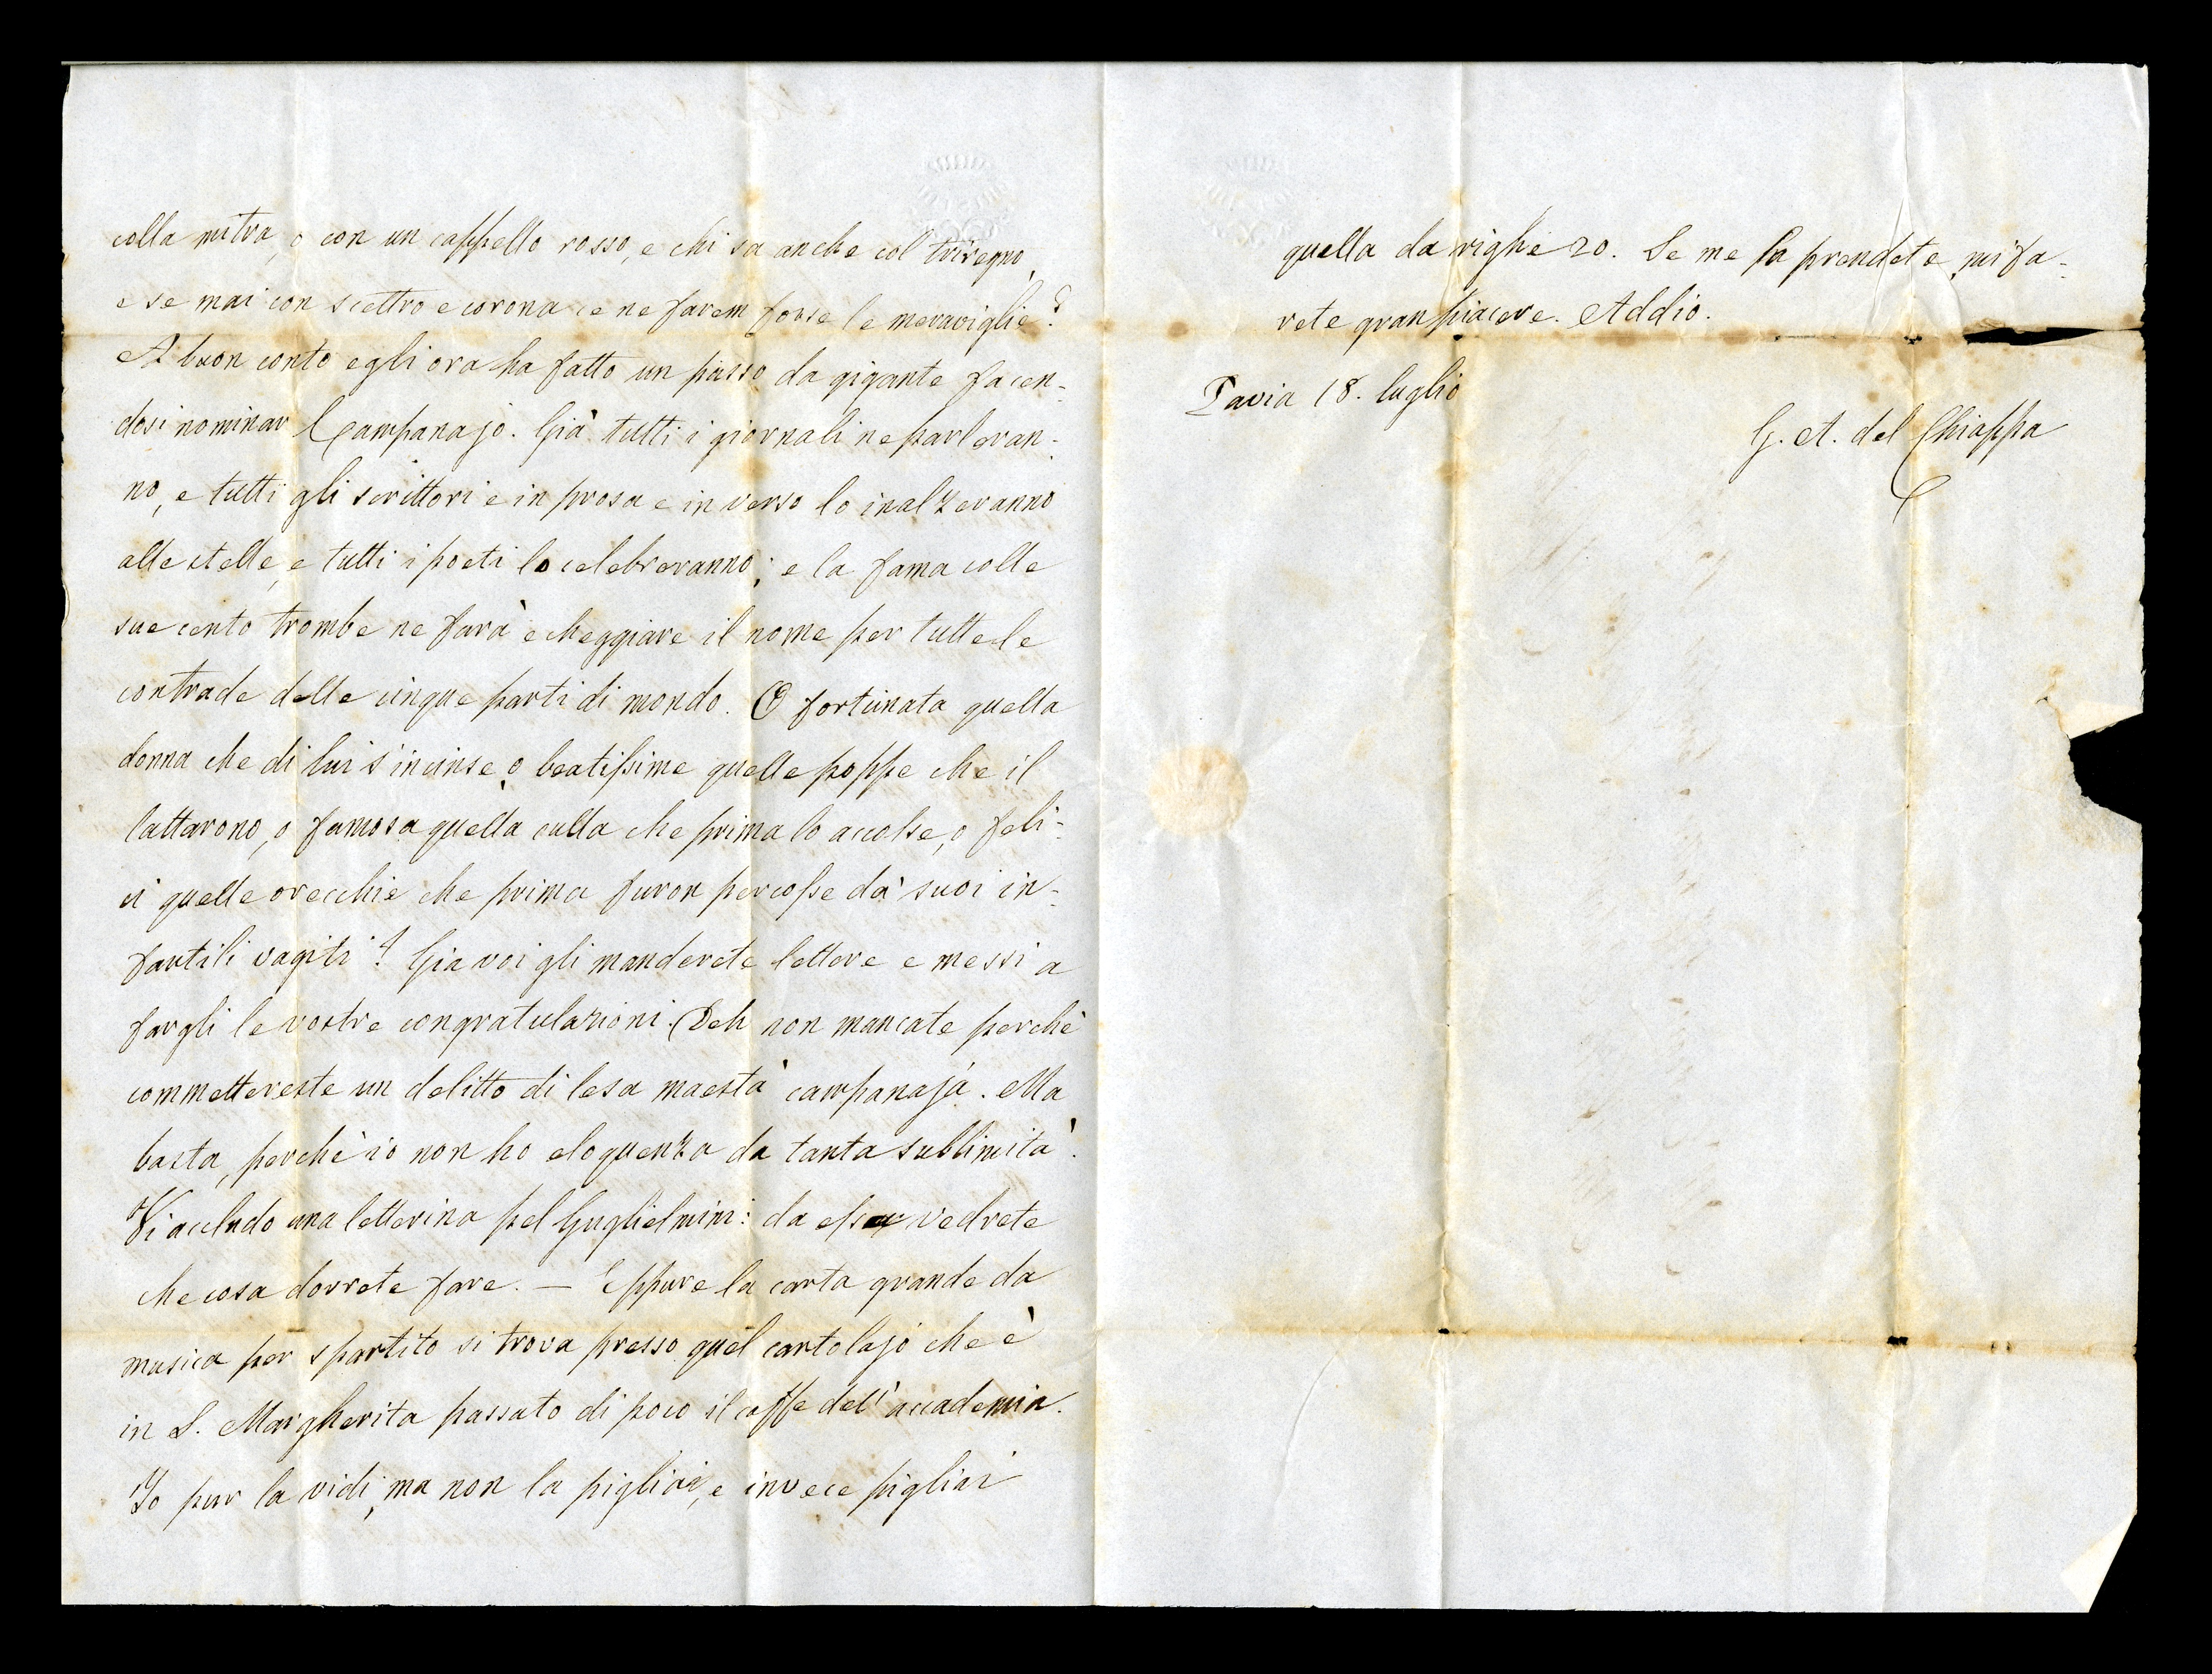 colla mitra, o con un cappello rosso, e chi sa anche col triregno,
e se mai con scettro e corona ce ne farem forse le meraviglie?
A buon conto egli ora ha fatto un passo da gigante facen-
dosi nominar Campanajo. Già tutti i giornali ne parleran-
no, e tutti gli scrittori e in prosa e in verso lo inalzeranno
alle stelle, e tutti i poeti lo celebreranno; e la fama colle
sue cento trombe ne farà echeggiare il nome per tutte le
contrade delle cinque parti di mondo. O fortunata quella
donna che di lui s'incinse, o beatissime quelle poppe che il
lattarono, o famosa quella culla che prima lo accolse, o feli-
ci quelle orecchie che prima furon percosse da' suoi in-
fantili vagiti! Gia voi gli manderete lettere e messi a
fargli le vostre congratulazioni. Deh non mancate perchè
commettereste un delitto di lesa maestà campanaja. Ma
basta, perchè io non ho eloquenza da tanta sublimità.
Vi accludo una letterina pel Guglielmini: da essa vedrete
che cosa dovrete fare. — Eppure la carta grande da
musica per spartito si trova presso quel cartolajo che è
in S. Margherita passato di poco il caffe dell'accademia.
Io pur la vidi, ma non la pigliai, e invece pigliai
quella da righe 20. Se me la prendete mi fa-
rete gran piacere. Addio.
Pavia 18. luglio
G. A. del Chiappa